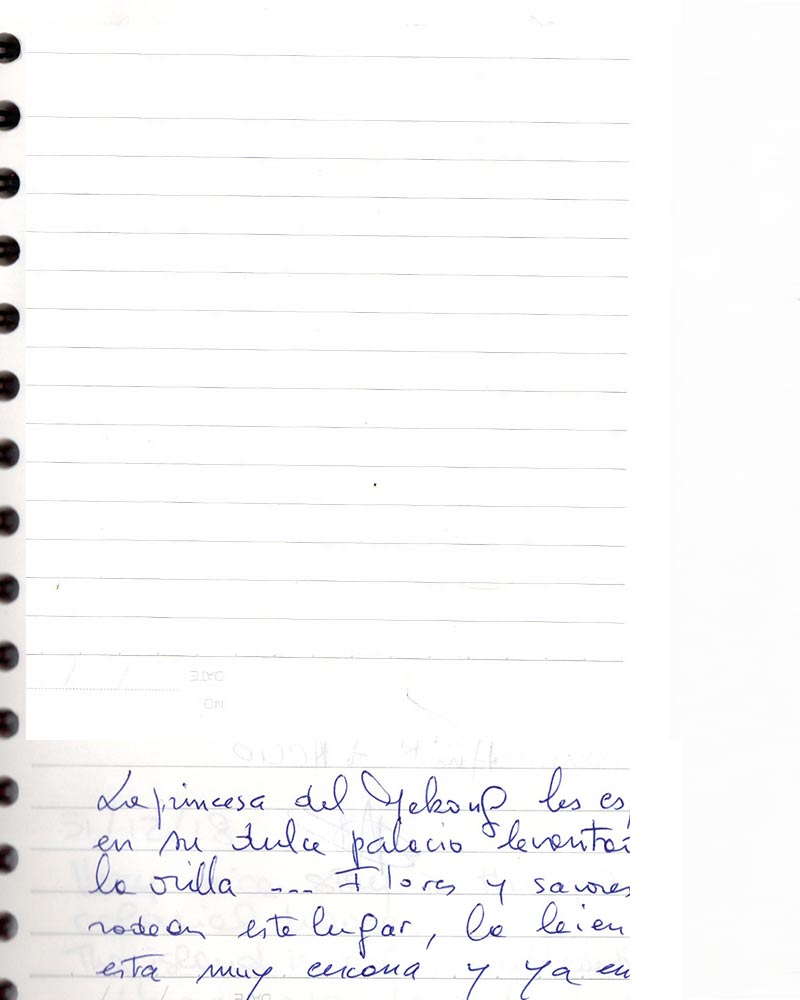 DATE
NO
La princesa del Mekong les es
en su dulce palacio levanta
la orilla --- Flores y savores
rodean este lugar, la leien
esta muy cercana y ya en
DATE